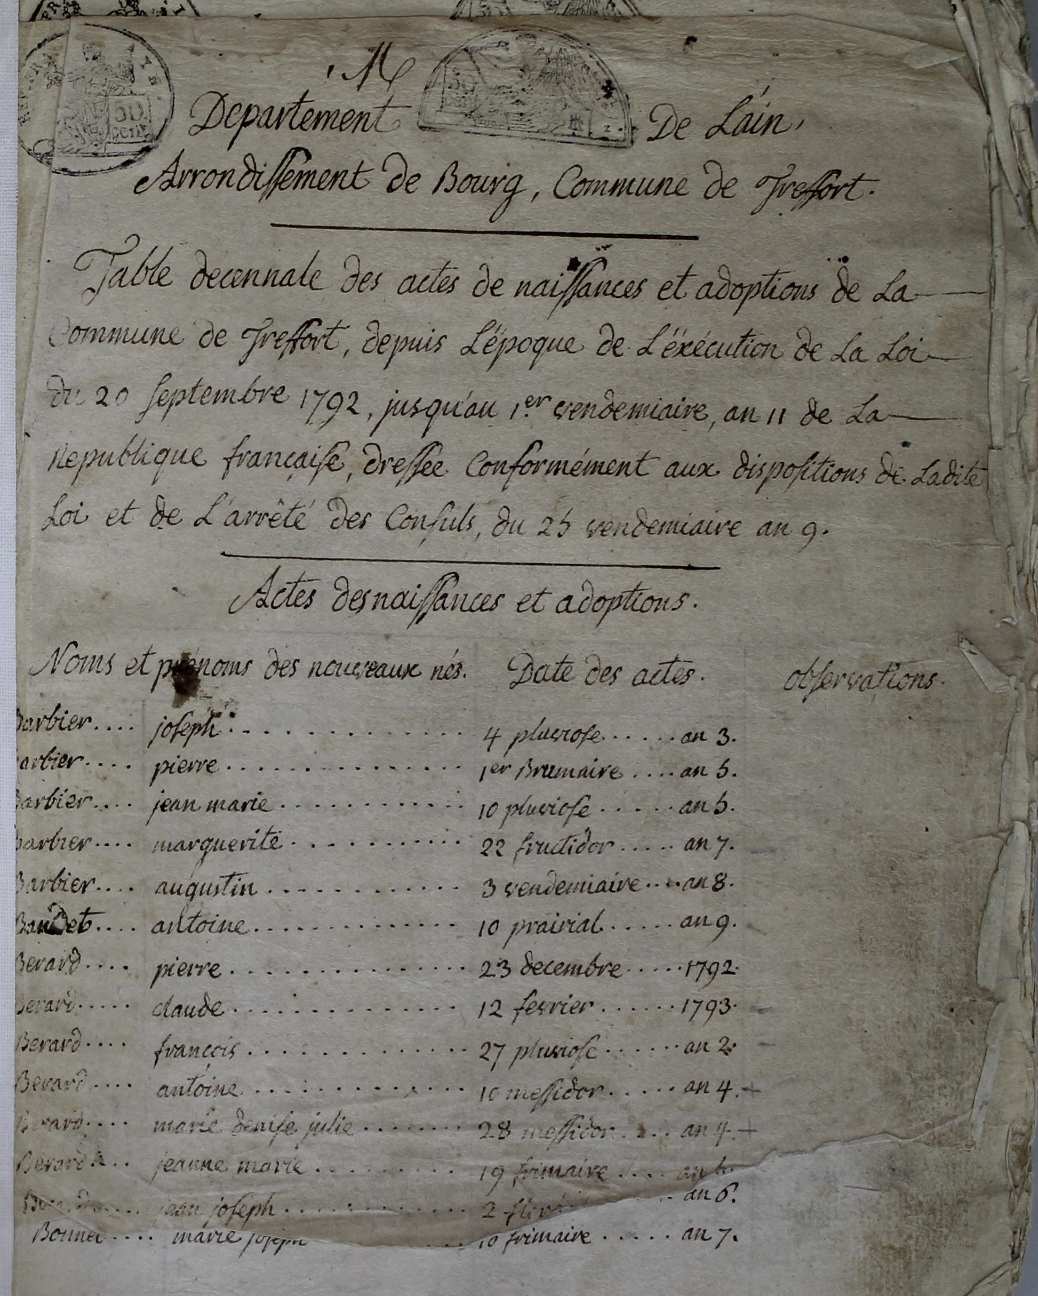 M
Departement De Láin,
Arrondissement de Bourg, Commune de Treffort.
Table decennale des actes de naissances et adoptions de La
Commune de Treffort, depuis L'époque de L'éxécution de La Loi
du 20 septembre 1792, jusqu'au 1.er vendemiaire, an 11 de La
Republique française, dressée Conformément aux dispositions de Ladite
Loi et de L'arrêté des Consuls, du 25 vendemiaire an 9.
Actes des naissances et adoptions.
Noms et prénoms des nouveaux nés. Date des actes. observations.
Barbier.... joseph............. 4 pluviose......an 3.
Barbier.... pierre............. 1er Brumaire....an 5.
Barbier.... jean marie........... 10 pluviose......an 5.
Barbier.... marguerite.......... 22 fructidor.....an 7.
Barbier.... augustin........... 3 vendemiaire....an 8.
Baudet.... antoine............ 10 prairial.....an 9.
Berard.... pierre............. 23 decembre.....1792.
Berard..... claude............ 12 fevrier......1793.
Berard.... francois............ 27 pluviose......an 2.
Berard.... antoine............ 10 messidor.....an 4.
Berard.... marie denise julie....... 28 messidor....an 4.
Berard... jeanne marie......... 19 frimaire....an 6.
jean joseph........... 2 an 6.
Bonnet.... marie joseph 10 frimaire......an 7.